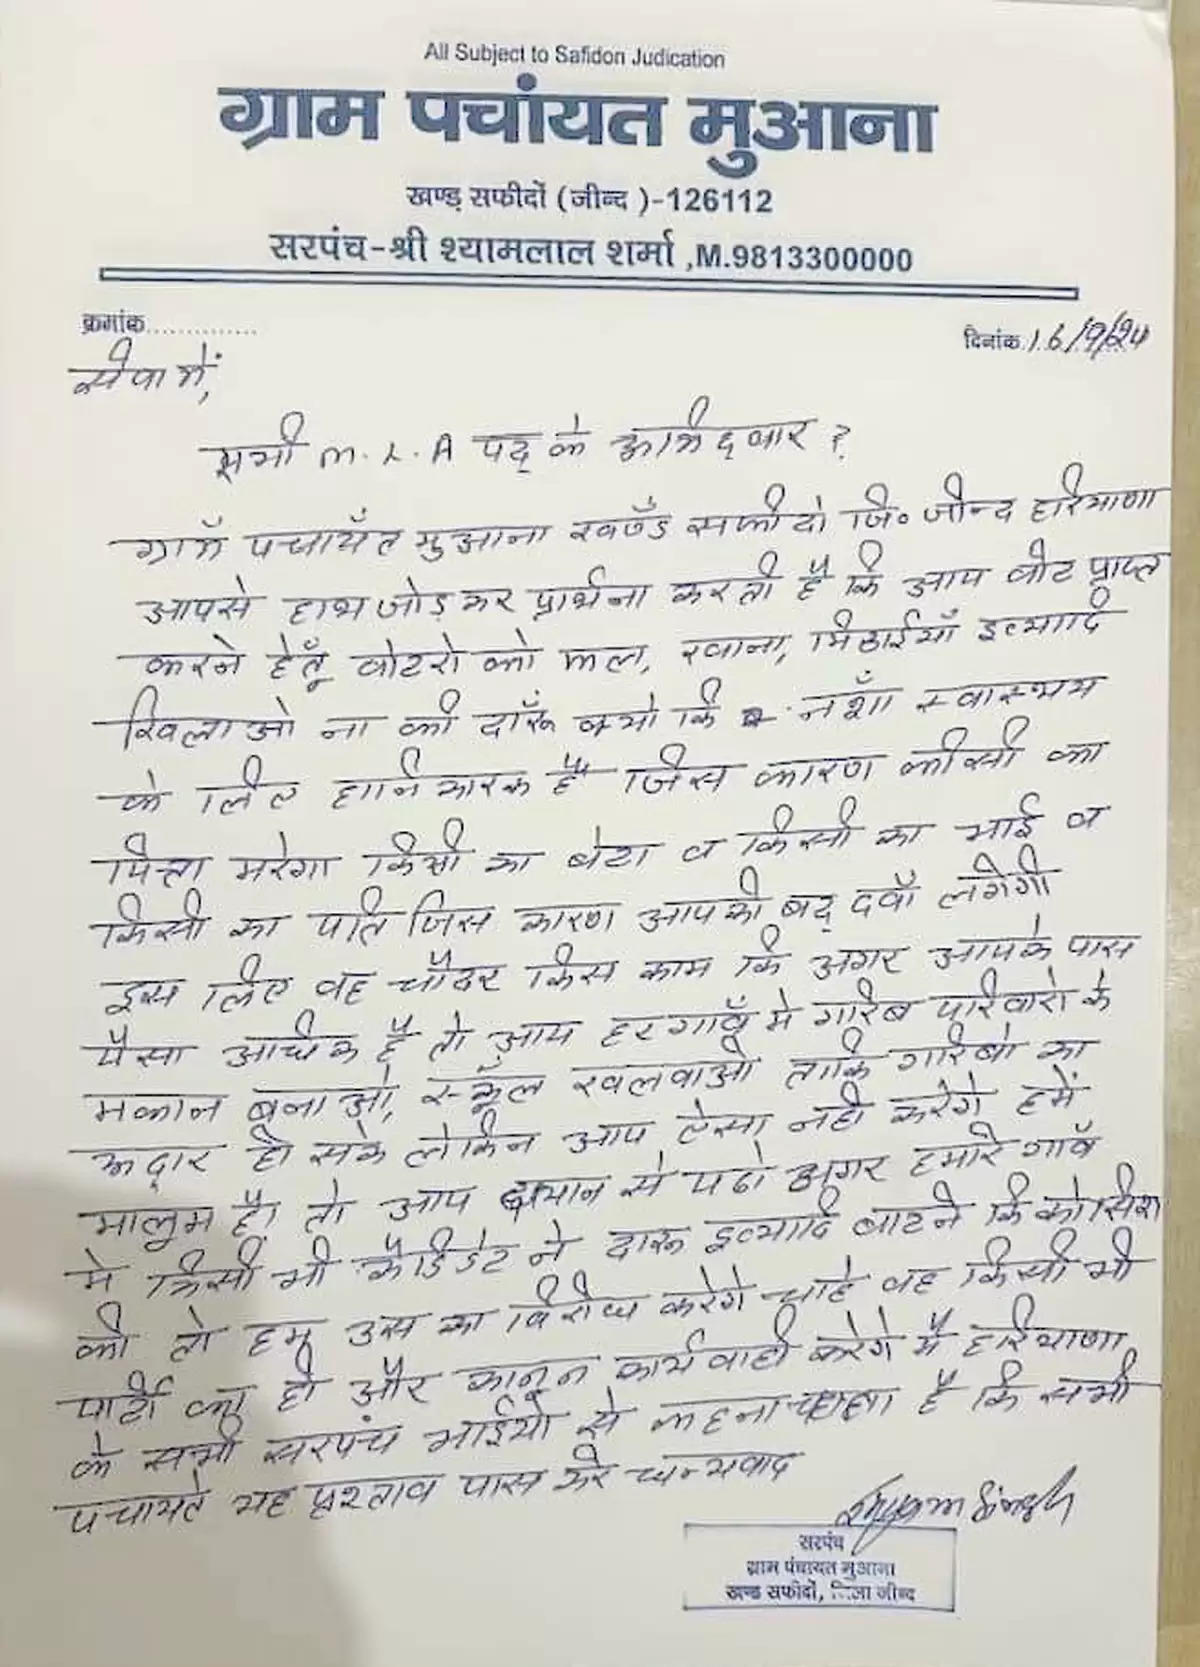 All Subject to Safidon Judication
ग्राम पचांयत मुआना
खण्ड़ सफीदों (जीन्द )-126112
सरपंच-श्री श्यामलाल शर्मा ,M.9813300000
क्रमांक..............
दिनांक 16/9/24
सेवा में,
सभी M.L.A पद् के उम्मिद्वार ?
ग्रामँ पचायँत मुआना खण्डँ सफीदो जि॰ जीन्द हरियाणा
आपसे हाथ जोड़ कर प्रार्थना करती है कि आप वोट प्राप्त
करने हेतूँ वोटरो को फल, खाना, मिठाईयाँ इत्यादि
खिलाओ ना की दाँरू क्यो कि नशाँ स्वास्थय
के लिए हानिकारक है जिस कारण कीसी का
पित्ता मरेगा किसी का बेटा व किसी का भाई व
किसी का पति जिस कारण आपको बद् दवाँ लगेगी
इस लिए वह चौदर किस काम कि अगर आपके पास
पैसा अधिक है तो आप हर गाँवँ मे गरिब परिवारो के
मकान बनाओ, स्कूँल खुलवाओ ताकि गरिबो का
उद्दार हो सके लेकिन आप ऐसा नही करेगे हमें
मालूम है। तो आप ध्यान से पढो अगर हमारे गाँव
मे किसी भी कैडिडेट ने दारू इत्यादि बाटने कि कोसिश
की तो हम उस का विरोध करेगे चाहे वह किसी भी
पार्टी का हो और कानून कार्यवाही करेगे मै हरियाणा
के सभी सरपंच भाईयो से कहना चाहता है कि सभी
पचायते यह प्रस्ताव पास करे धन्यवाद
सरपंच
ग्राम पंचायत मुआना
खण्ड सफीदों, जिला जीन्द